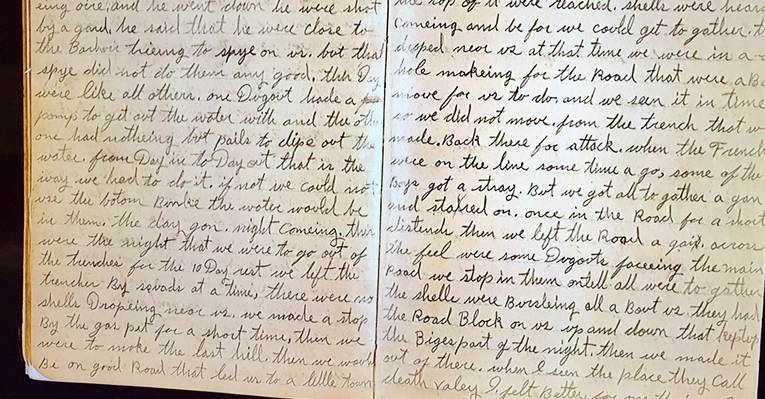 eing oire, and he went down he were shot
by a gard, he said that he were close to
the Barbwir trieng to spye on us. but that
spye did not do them any good, this Day
were like all others. one Dugout hade a
pomp to get out the water with and the othe
one had notheing but pails to dipe out the
water, from Day in to Day out that is the
way we had to do it, if not we could not
use the botom Bonke the water would be
in them. the day gon, night Comeing, this
were the night that we were to go out of
the trenches for the 10 Day rest we left the
trencher By sqvads at a time, there were no
shells Dropeing near us. we made a stop
By the gas pet for a short time, then we
were to make the last hill, then we would
Be on good Road that led us to a little town
the top of it were reached. shells were heard
Comeing and be for we could get to gather. t
droped near us at that time we were in a
hole makeing for the Road that were a Ba
move for us to do, and we seen it in time
so we did not move. from the trench that w
made. Back there for attack. when the French
were on the line some time a go, some of the
Boys got a stray. But we got all to gather a gan
and stayed on. once in the Road for a short
distends then we left the Road a gain. across
the feel were some Dugouts faceeing the main
Road we stop in them ontell all were to gather
the shells were Bursteing all a Bout us. they had
the Road Block on us up and down that kept up
the Biges part of the night. then we made it
out of there. when I seen the place they Call
death valey I felt Better for